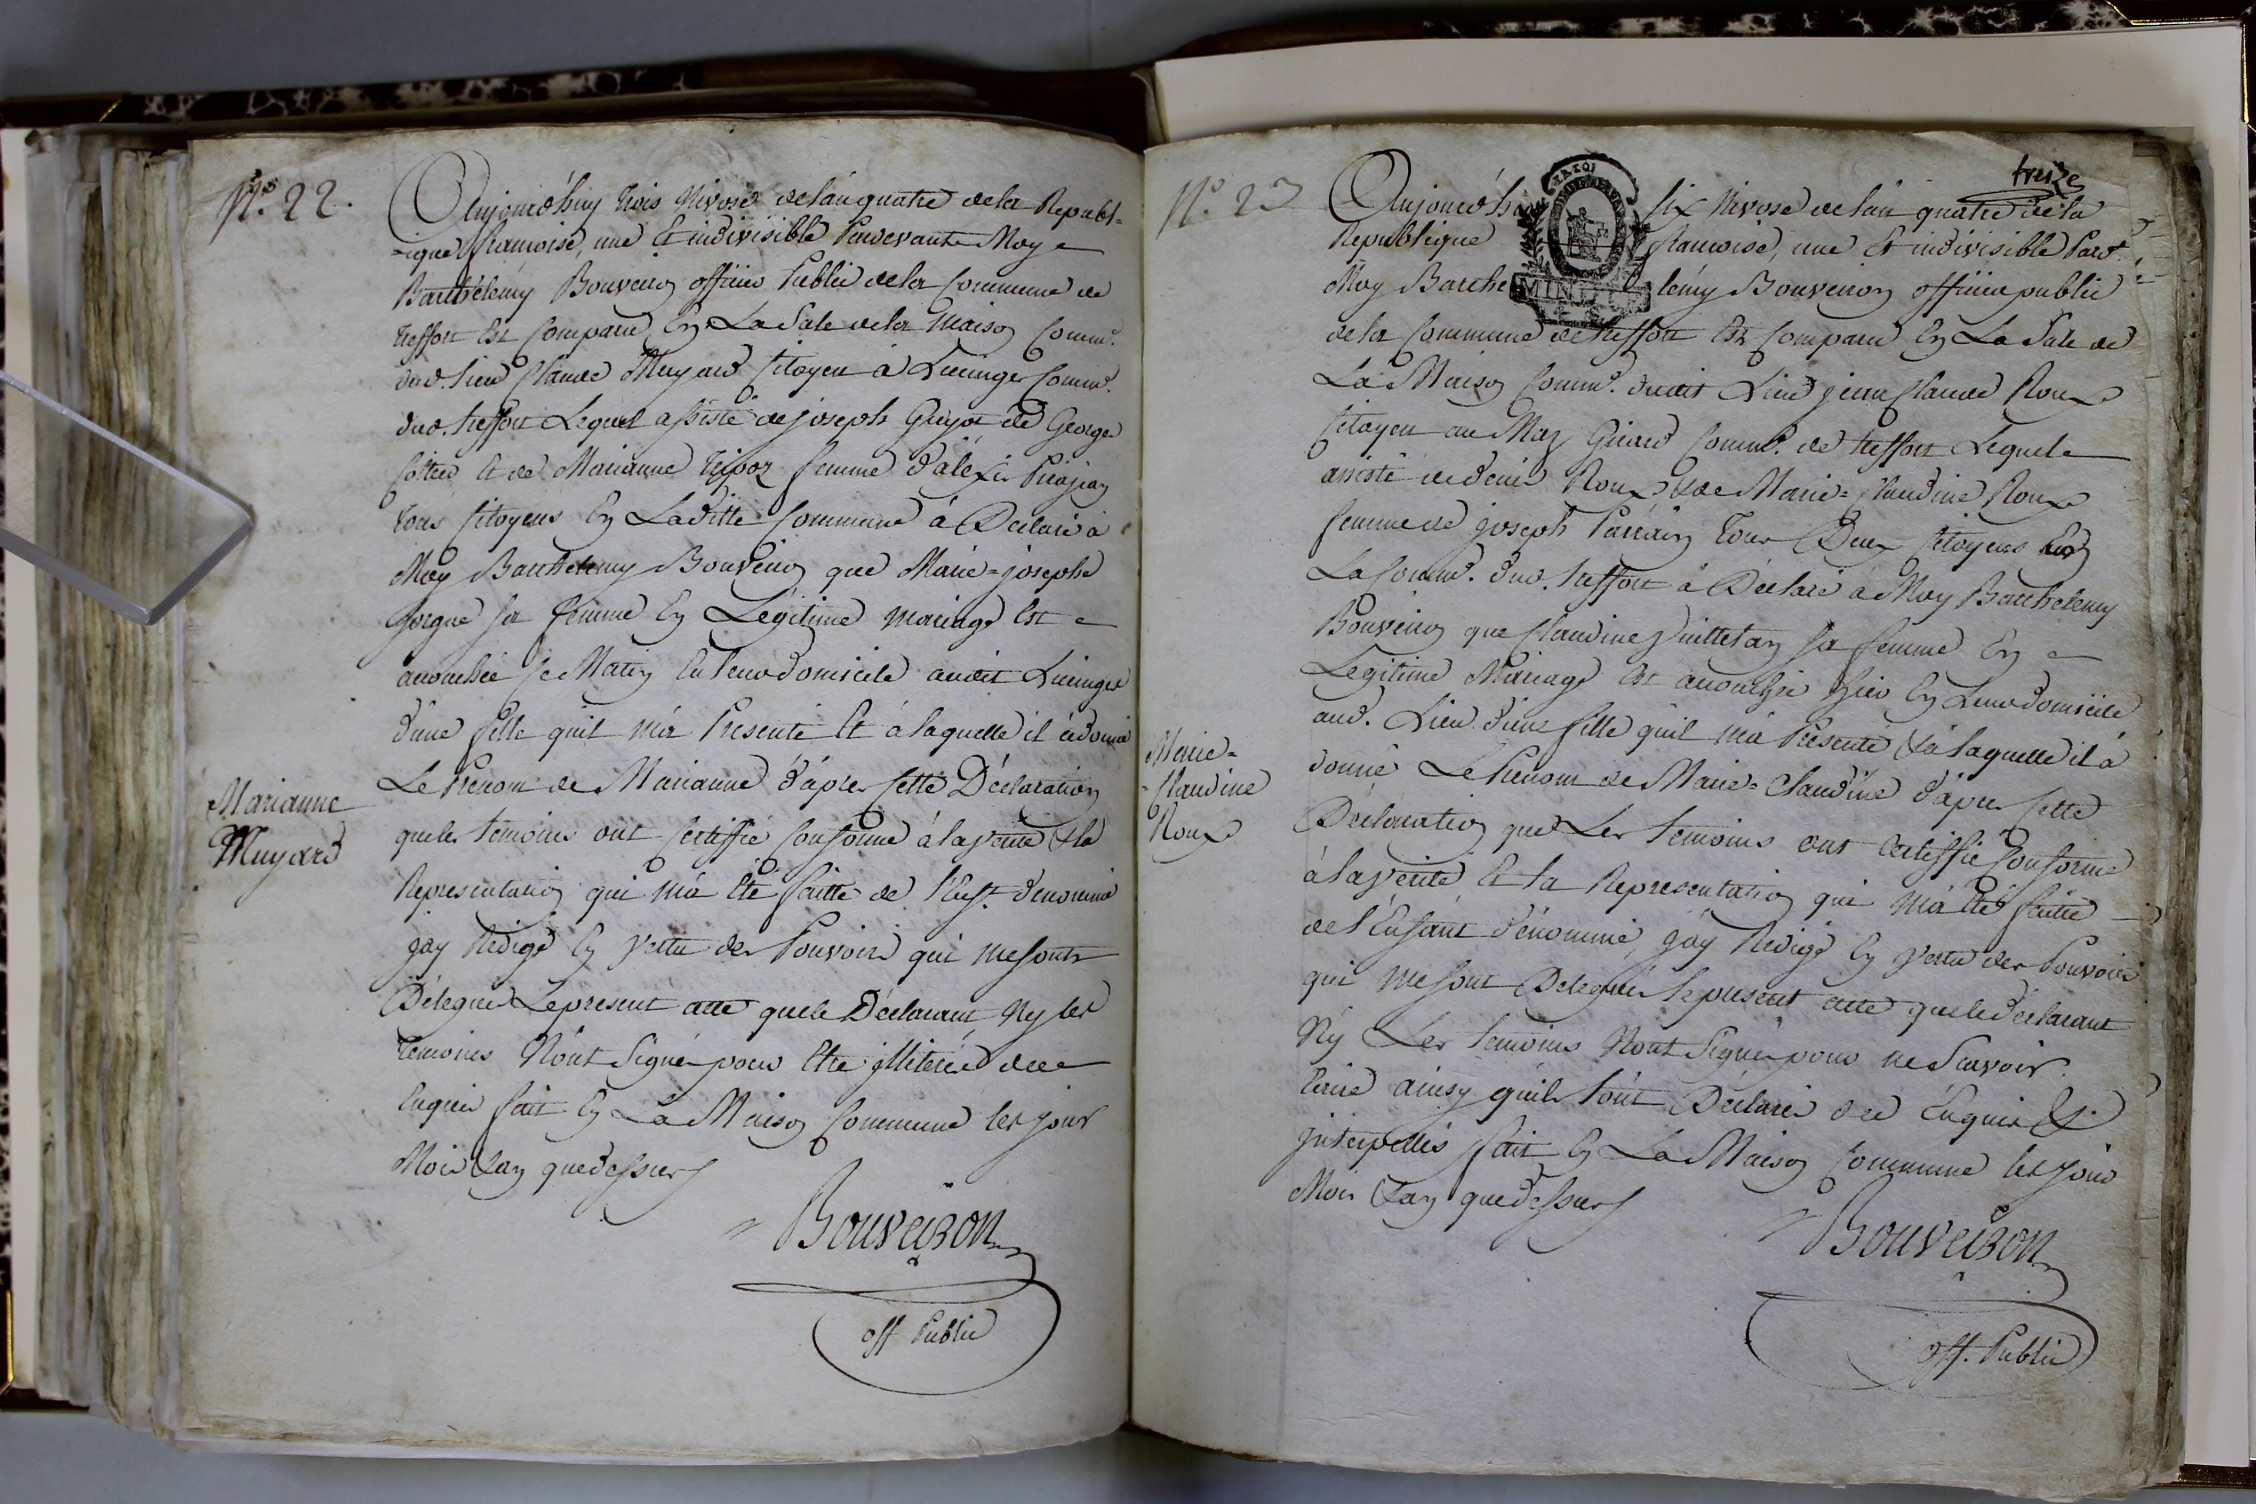 N.º 22.
Aujourd'huy trois Nivose de l'an quatre de la Republ-
-ique francoise, une Et indivisible Pardevant Moy
Barthelemy Bouveiron officier Public de la Commune de
treffort Est Comparu En La Sale de la Maison Comm.e
dud. lieu Claude Muyard Citoyen à Lucinges Comm.e
dud. treffort Lequel assisté de joseph Guyot de George
et de Marianne femme d'alexis
tous Citoyens En Laditte Commune à Declaré à
Moy Barthelemy Bouveiron que Marie=josephe
Gorgue sa femme En Légitime mariage Est
accouchée Ce Matin En leur domicile audit Lucinges
d'une fille quil m'a Presenté Et à laquelle il à donné
Le Prenom de Marianne d'après Cette Déclaration
que les temoins ont Certiffié Conforme à la verité & la
Representation qui m'à Eté faitte de l'Enf.t denommé
jay Redigé En vertu des Pouvoirs qui me sont
Délegués Le present acte que le Déclarant Ny les
temoins N'ont Signé pour Etre illiterés de ce
Enquis fait En La Maison Commune les jour
Mois & an que dessus
Marianne
Muyard
Bouveiron
off Public
treize
N.º 23
Aujourd'hui six Nivose de l'an quatre de la
Republique francoise, une Et indivisible Pard.t
Moy Barthelemy Bouveiron officier public
de la Commune de treffort Est Comparu En La Sale de
La Maison Comm.e dudit Lieu jean Claude Roux
Citoyen au Maz Girard Comm.e de treffort Lequel
assisté de denis Roux & de Marie=Claudine Roux
femme de joseph Parrain tous Deux Citoyens En
La Comm.e dud. treffort à Déclaré à Moy Barthelemy
Bouveiron que Claudine Vuitteran sa femme En
Legitime Mariage Est accouchée hier En Leur domicile
aud. Lieu d'une fille quil m'a Présenté & à laquelle il à
donné Le Prenom de Marie=Claudine d'après Cette
Déclaration que Les temoins ont certiffié Conforme
à la verité Et la Representation qui m'à Eté faitte
de l'Enfant dénommé, jay Redigé En vertu des Pouvoirs
qui me sont Delegués le present acte que le déclarant
Ny Les temoins N'ont Signé pour ne Scavoir
Ecrire ainsy quils l'ont Déclaré de ce Enquis &
interpellés fait En La Maison Commune les jour
Mois & an que dessus
Marie=
Claudine
Roux
Bouveiron
off. Public
MINUTE